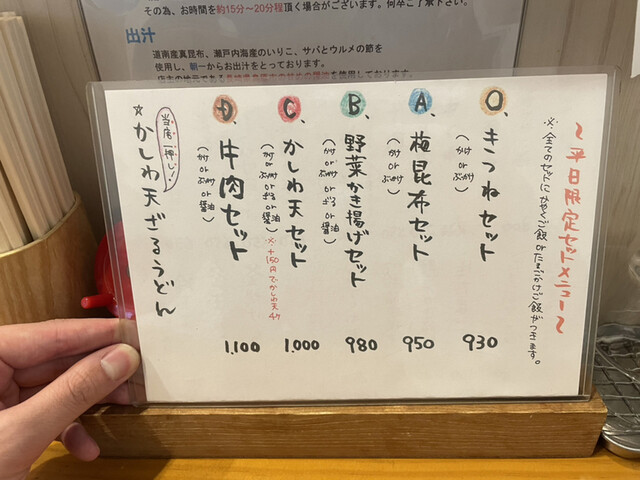 その為、お時間を約15分～20分程頂く場合がございます。何卒ご了承下さい。
出汁
道南産真昆布、瀬戸内海産のいりこ、サバとウルメの節を
使用し、朝一からお出汁をとっております。
～平日限定セットメニュー～
※全てのセットにかやくご飯 or たまごかけご飯がつきます。
O、きつねセット
(かけ or ぶっかけ)
930
A、梅昆布セット
(かけ or ぶっかけ)
950
B、野菜かき揚げセット
(かけ or ぶっかけ or ざる or 醤油)
980
C、かしわ天セット
(かけ or ぶっかけ or ざる or 醤油)
※+150円でかしわ天4ケ
1,000
D、牛肉セット
(かけ or ぶっかけ or 醤油)
1,100
当店一押し!
☆かしわ天ざるうどん